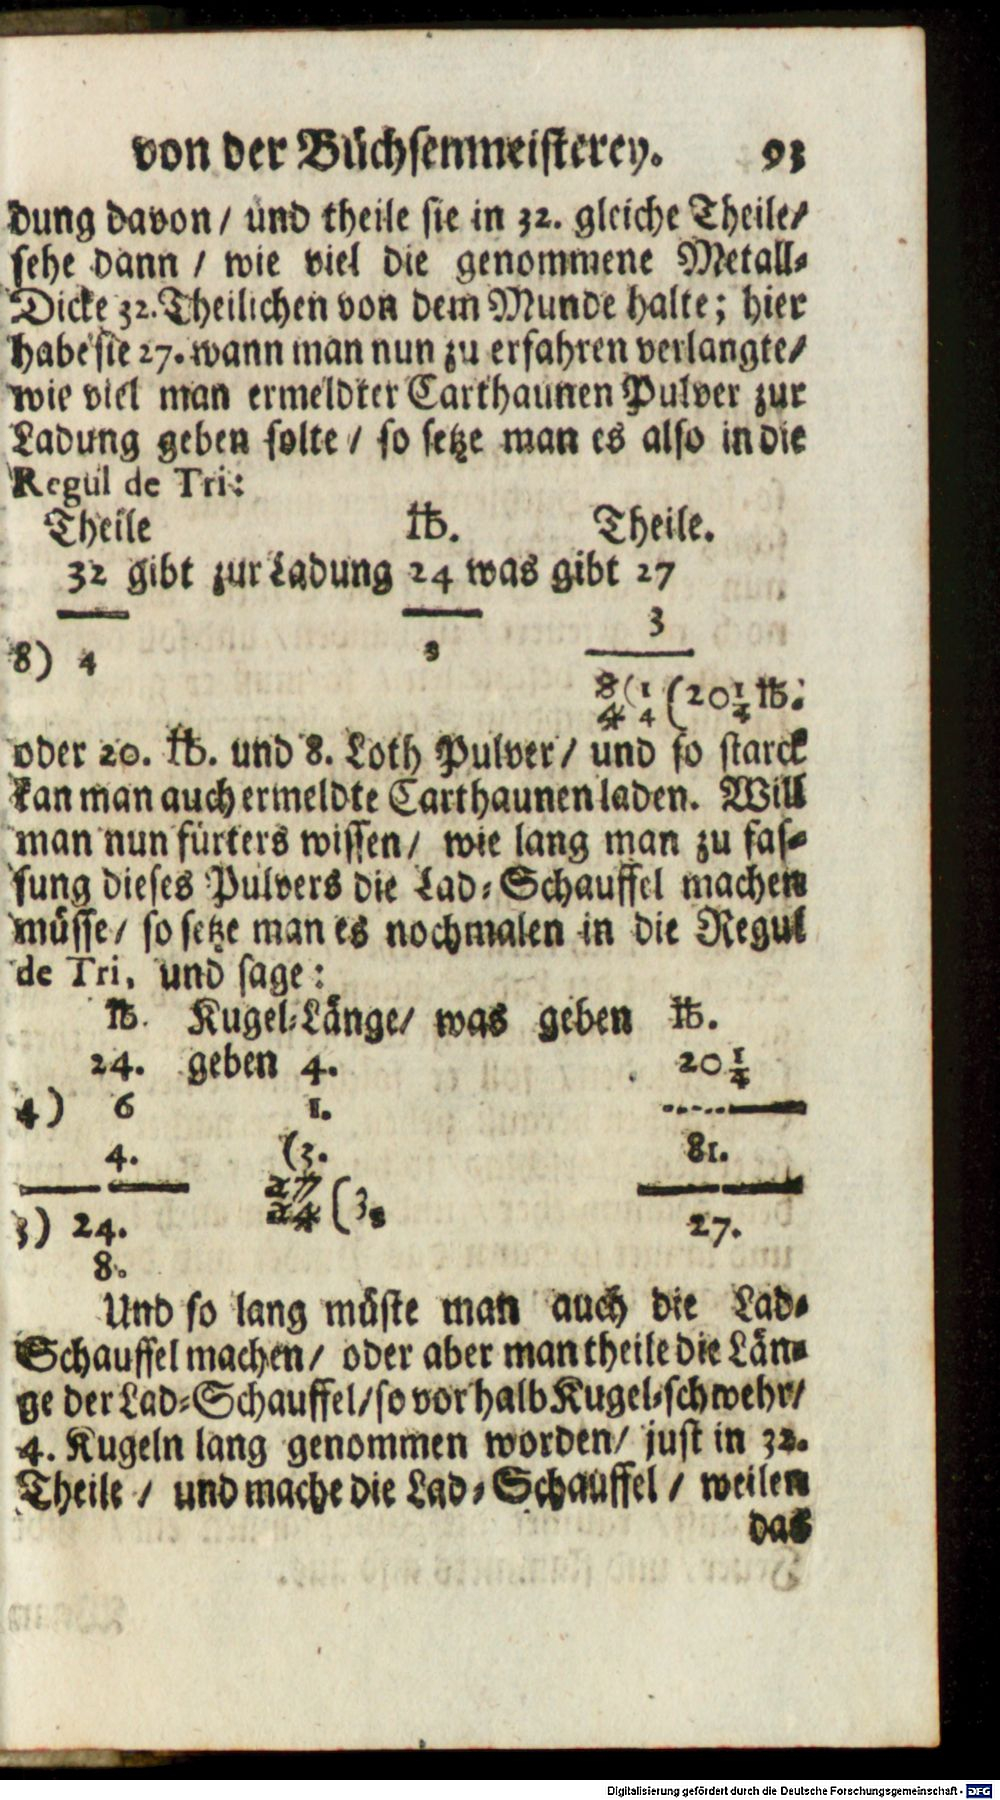 von der Büchsenmeisterey. 93
dung davon / und theile sie in 32. gleiche Theile/
sehe dann / wie viel die genommene Metall-
Dicke 32. Theilichen von dem Munde halte; hier
habe sie 27. wann man nun zu erfahren verlangte/
wie viel man ermeldter Carthaunen Pulver zur
Ladung geben solte / so setze man es also in die
Regul de Tri:
Theile ℔. Theile.
32 gibt zur Ladung 24 was gibt 27
3
8) 4 3
8 (1 (20 1/4 ℔.
4 4
oder 20. ℔. und 8. Loth Pulver / und so starck
kan man auch ermeldte Carthaunen laden. Will
man nun fürters wissen / wie lang man zu fas-
sung dieses Pulvers die Lad-Schauffel machen
müsse / so setze man es nochmalen in die Regul
de Tri, und sage:
℔. Kugel-Länge/ was geben ℔.
24. geben 4. 20 1/4
4) 6 1.
4. (3. 81.
27
24 (3
3) 24. 27.
8.
Und so lang müste man auch die Lad-
Schauffel machen / oder aber man theile die Län-
ge der Lad-Schauffel / so vor halb Kugel-schwehr/
4. Kugeln lang genommen worden / just in 32.
Theile / und mache die Lad-Schauffel / weilen
das
Digitalisierung gefördert durch die Deutsche Forschungsgemeinschaft - DFG